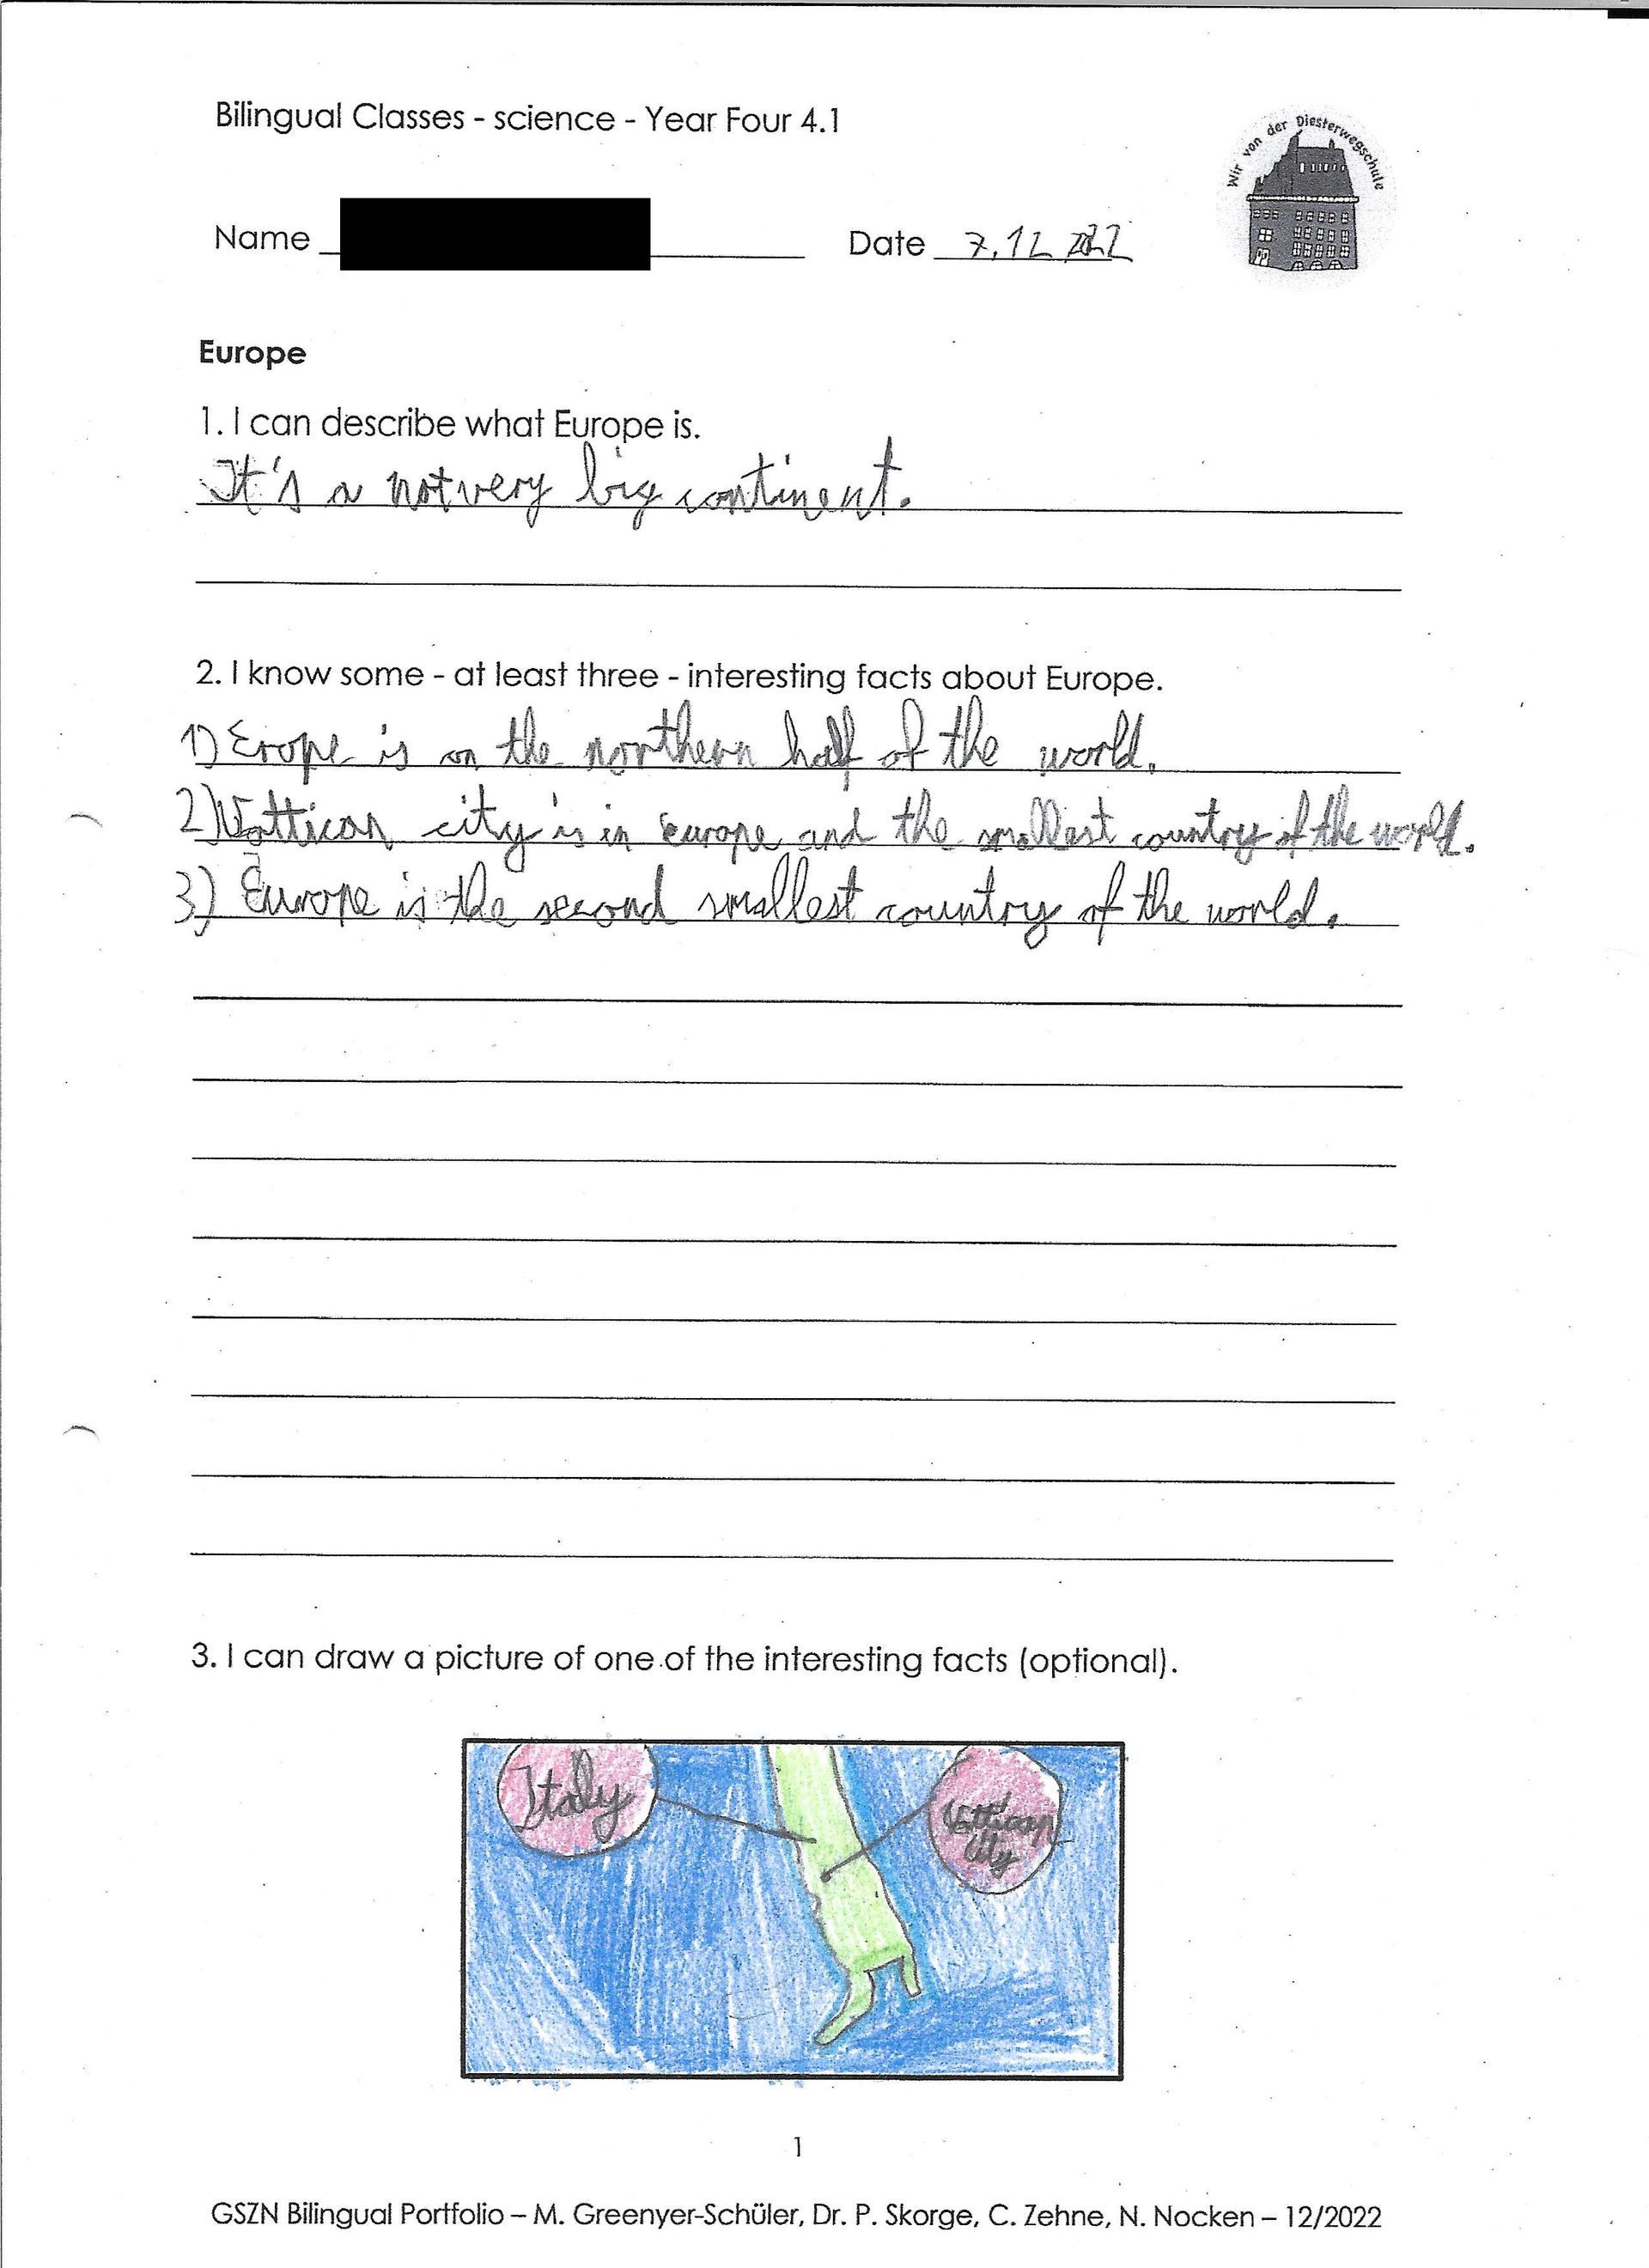 Bilingual Classes - science - Year Four 4.1
Wir von der Diesterwegschule
Name Date 7.12.2022
Europe
1. I can describe what Europe is.
It's a not very big continent.
2. I know some - at least three - interesting facts about Europe.
1) Erope is on the northern half of the world.
2) Vattican city is in europe and the smallest country of the world.
3) Europe is the second smallest country of the world.
3. I can draw a picture of one of the interesting facts (optional).
Italy
Vattican
City
1
GSZN Bilingual Portfolio – M. Greenyer-Schüler, Dr. P. Skorge, C. Zehne, N. Nocken – 12/2022